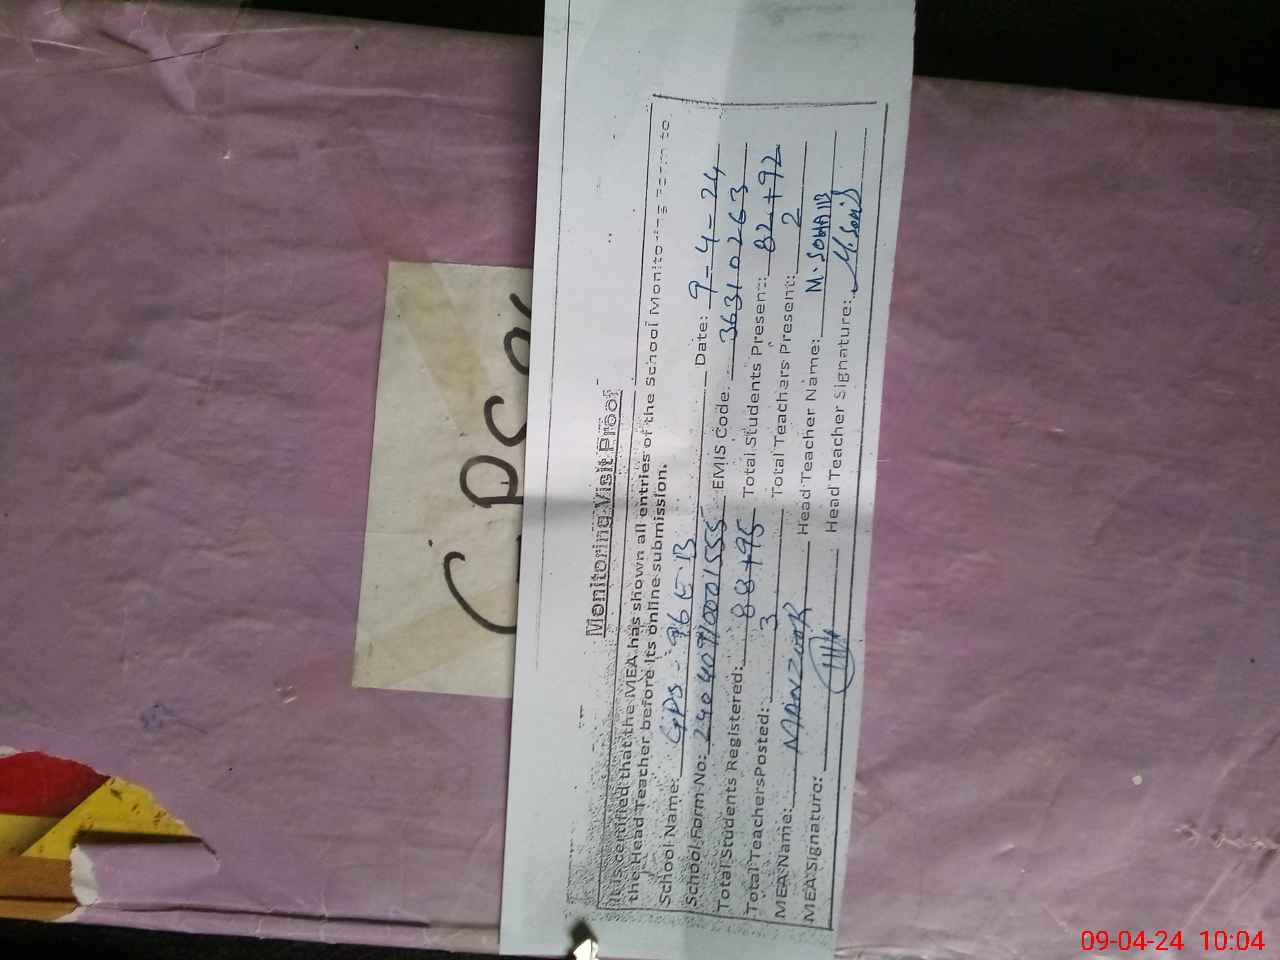 Monitoring Visit Proof
It is certified that the MEA has shown all entries of the School Monitoring Form to
the Head Teacher before its online submission.
School Name: GPS - 96 E.B Date: 9-4-24
School Form No: EMIS Code: 36310263
Total Students Registered: 88+95 Total Students Present: 82+92
Total Teachers Posted: 3 Total Teachers Present: 2
MEA Name: MANZOOR Head Teacher Name: M. SOHAIB
MEA Signature: Head Teacher Signature:
GPS
09-04-24 10:04